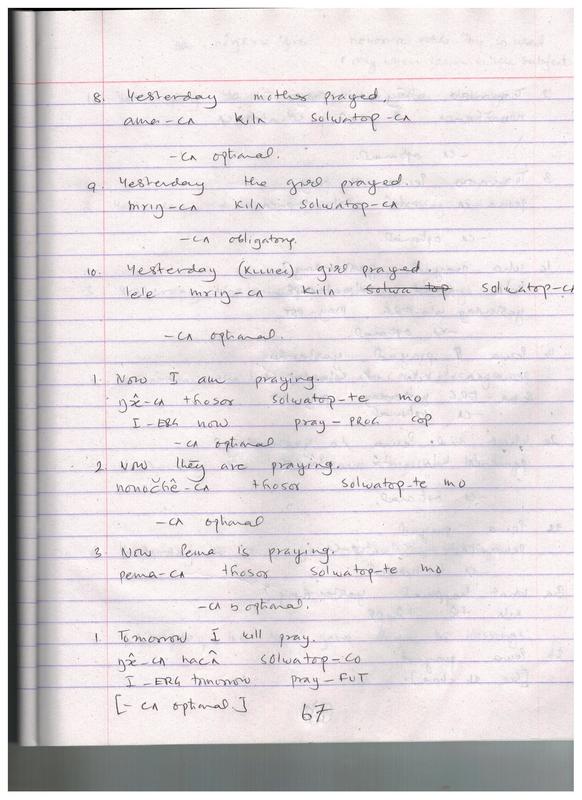 8. Yesterday mother prayed.
ama-cʌ kilʌ solwatop-cʌ
-cʌ optional.
9. Yesterday the girl prayed.
mriŋ-cʌ kilʌ solwatop-cʌ
-cʌ obligatory.
10. Yesterday (Kunei) girl prayed.
lele mriŋ-cʌ kilʌ solwa top solwatop-cʌ
-cʌ optional.
1. Now I am praying.
ŋx̂-cʌ thosor solwatop-te mo
I-ERG now pray-PROG COP
-cʌ optional
2. Now they are praying.
-cʌ thosor solwatop-te mo
-cʌ optional
3 Now Pema is praying.
pema-cʌ thosor solwatop-te mo
-cʌ is optional.
1. Tomorrow I will pray.
ŋx̂-cʌ nacʌ̂ solwatop-co
I-ERG tomorrow pray-FUT
[-cʌ optional]
67